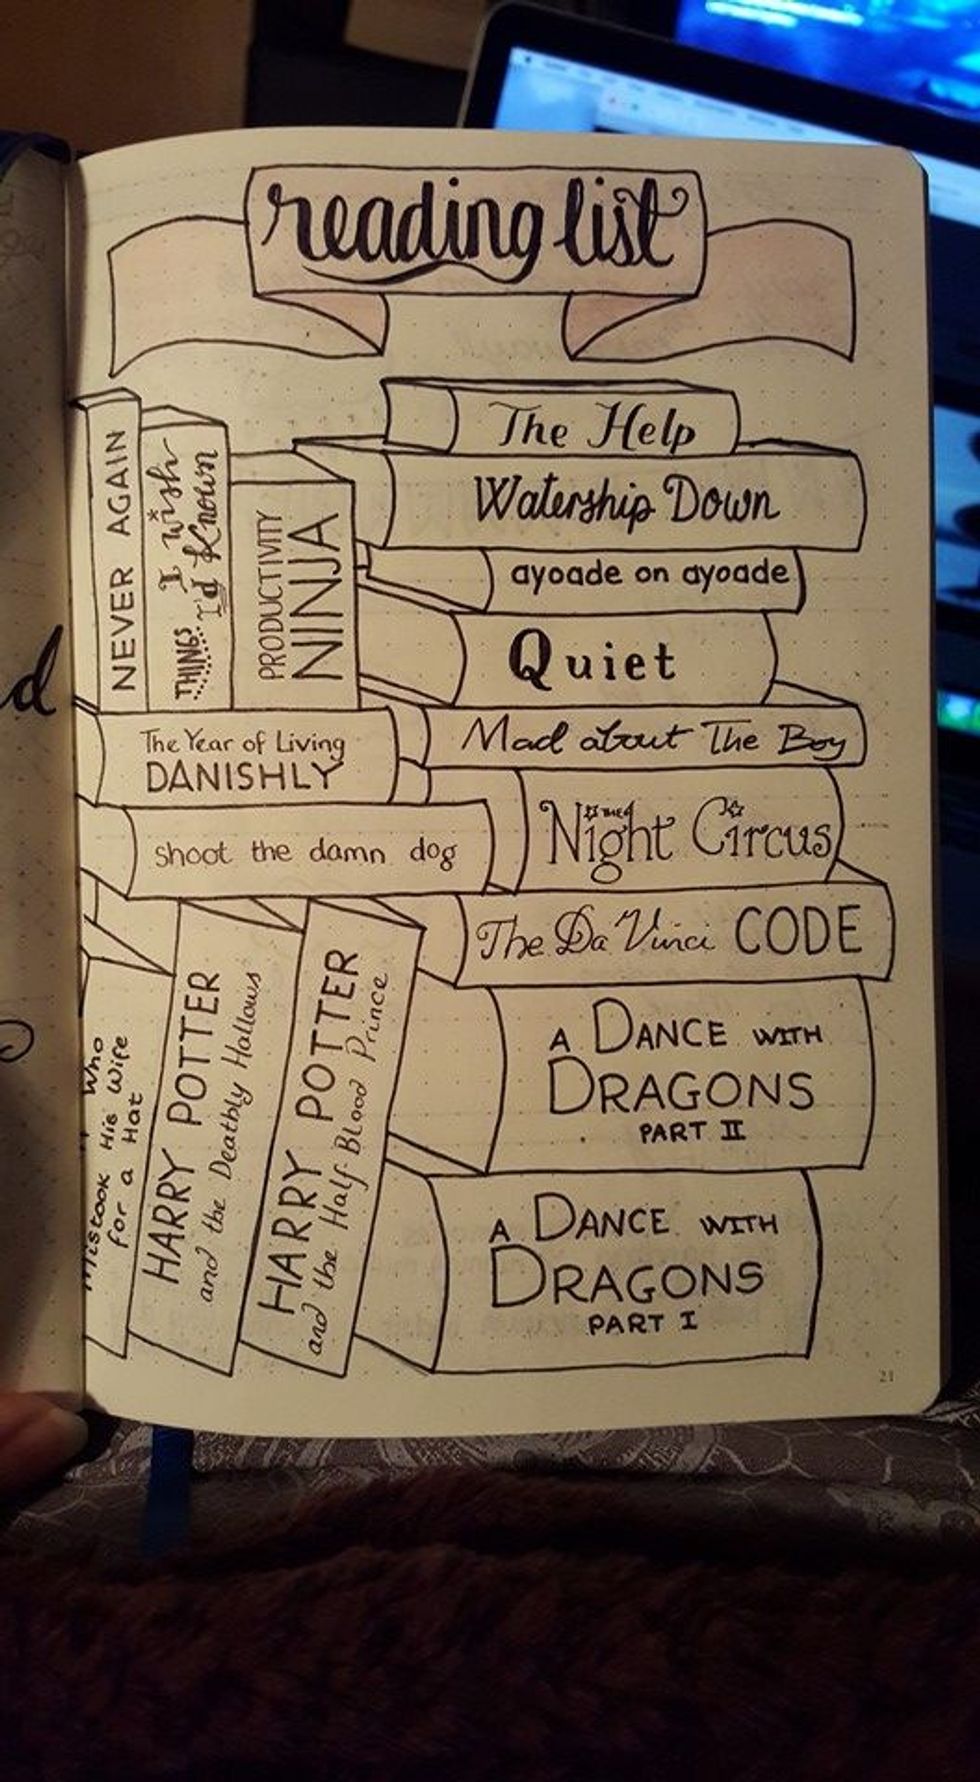 reading list
The Help
Watership Down
ayoade on ayoade
Quiet
Mad about The Boy
THE
Night Circus
The Da Vinci CODE
A DANCE WITH
DRAGONS
PART II
A DANCE WITH
DRAGONS
PART I
NEVER AGAIN
THINGS I wish
I'd Known
PRODUCTIVITY
NINJA
The Year of Living
DANISHLY
shoot the damn dog
Who
Mistook His Wife
for a Hat
HARRY POTTER
and the Deathly Hallows
HARRY POTTER
and the Half Blood Prince
21
d